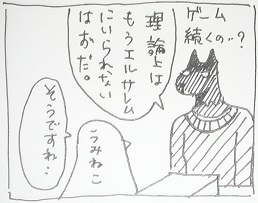 ゲーム
続くの…?
理論上は
もうエルサレム
にいられない
はずだ。
うみねこ
そうですね…